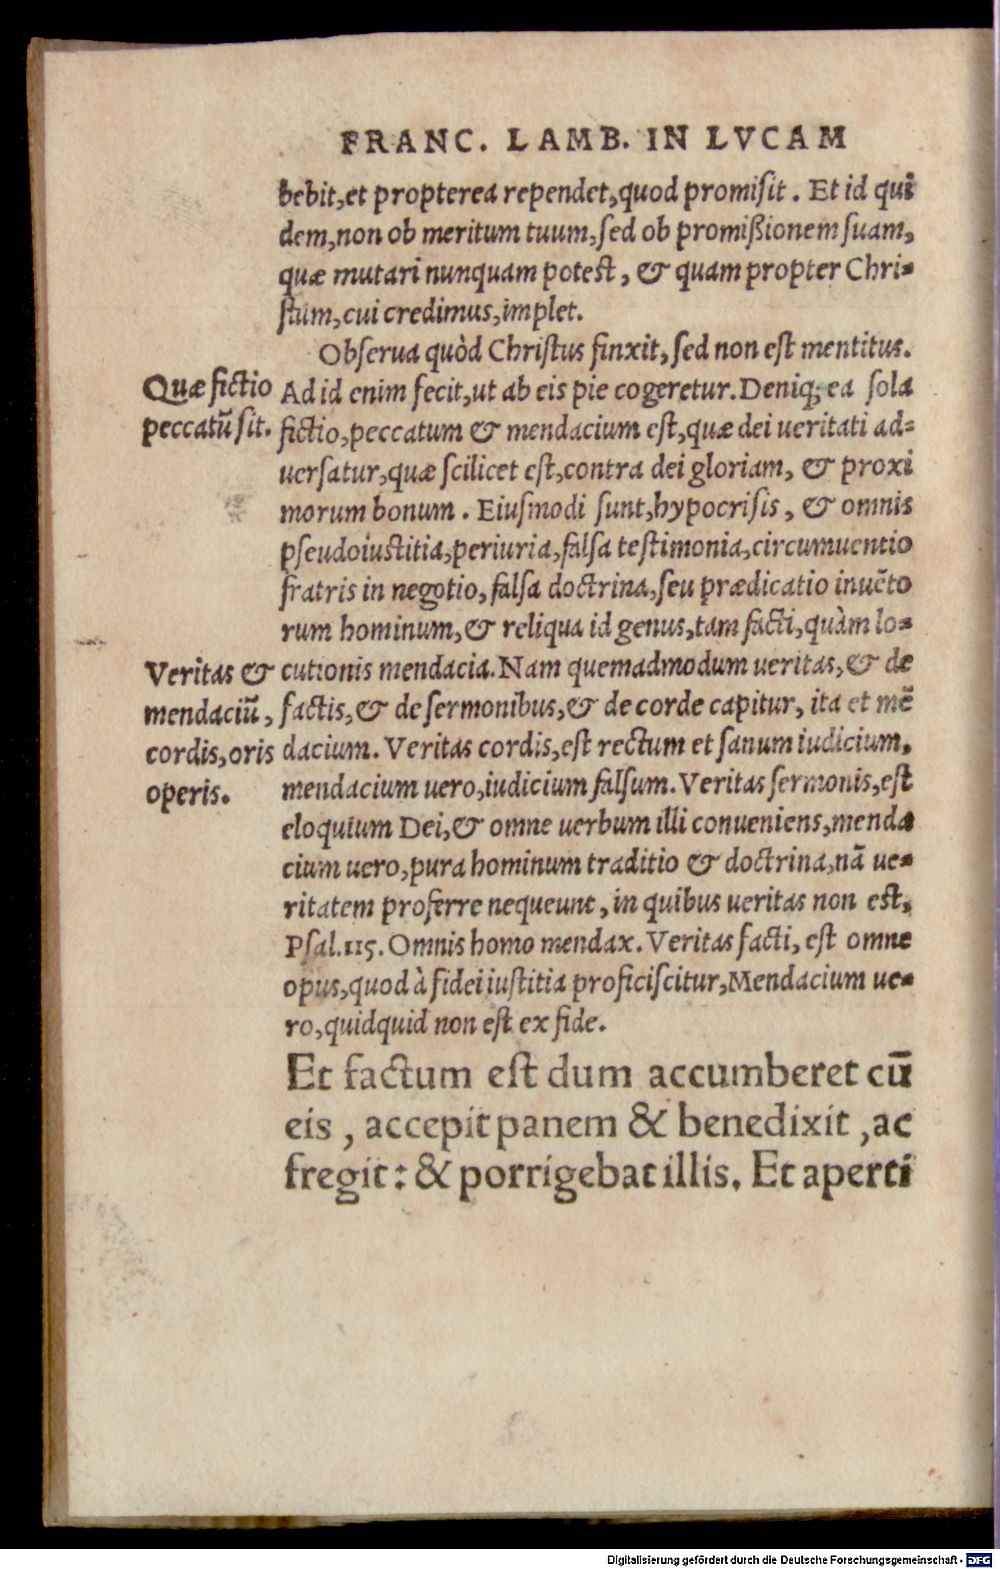 FRANC. LAMB. IN LVCAM
bebit, et propterea rependet, quod promisit. Et id qui
dem, non ob meritum tuum, sed ob promißionem suam,
quæ mutari nunquam potest, & quam propter Chri-
stum, cui credimus, implet.
Obserua quòd Christus finxit, sed non est mentitus.
Quæ fictio
peccatū sit.
Ad id enim fecit, ut ab eis pie cogeretur. Deniq; ea sola
fictio, peccatum & mendacium est, quæ dei ueritati ad-
uersatur, quæ scilicet est, contra dei gloriam, & proxi
morum bonum. Eiusmodi sunt, hypocrisis, & omnis
pseudoiustitia, periuria, falsa testimonia, circumuentio
fratris in negotio, falsa doctrina, seu prædicatio inuēto
rum hominum, & reliqua id genus, tam facti, quàm lo-
Veritas &
mendaciū,
cordis, oris
operis.
cutionis mendacia. Nam quemadmodum ueritas, & de
factis, & de sermonibus, & de corde capitur, ita et mē
dacium. Veritas cordis, est rectum et sanum iudicium,
mendacium uero, iudicium falsum. Veritas sermonis, est
eloquium Dei, & omne uerbum illi conueniens, menda
cium uero, pura hominum traditio & doctrina, nā ue-
ritatem proferre nequeunt, in quibus ueritas non est,
Psal. 115. Omnis homo mendax. Veritas facti, est omne
opus, quod à fidei iustitia proficiscitur, Mendacium ue-
ro, quidquid non est ex fide.
Et factum est dum accumberet cū
eis, accepit panem & benedixit, ac
fregit: & porrigebat illis. Et aperti
Digitalisierung gefördert durch die Deutsche Forschungsgemeinschaft - DFG